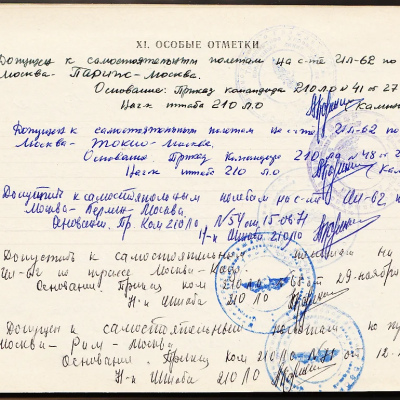 XI. ОСОБЫЕ ОТМЕТКИ
Допущен к самостоятельным полетам на с-те Ил-62 по
Москва - Париж - Москва.
Основание: Приказ командира 210 ло № 41 от 27
Нач. штаба 210 л.о
Допущен к самостоятельным полетам на с-те Ил-62 по
Москва - Токио - Москва.
Основание: Приказ Командира 210 ло № 48 от 2
Нач. штаба 210 л.о
Допустить к самостоятельным полетам на с-те Ил-62 по
Москва - Берлин - Москва
Основание: Пр. Ком 210 ЛО № 54 от 15.08.71
Н-к Штаба 210 ЛО
Допустить к самостоятельным полетам на
Ил-62 по трассе Москва - Каир
Основание: Приказ ком 210 ЛО от 29 ноября
Н-к Штаба 210 ЛО
Допущен к самостоятельным полетам по
Москва - Рим - Москва
Основание: Приказ ком 210 ЛО № 71 от 12.
Н-к Штаба 210 ЛО